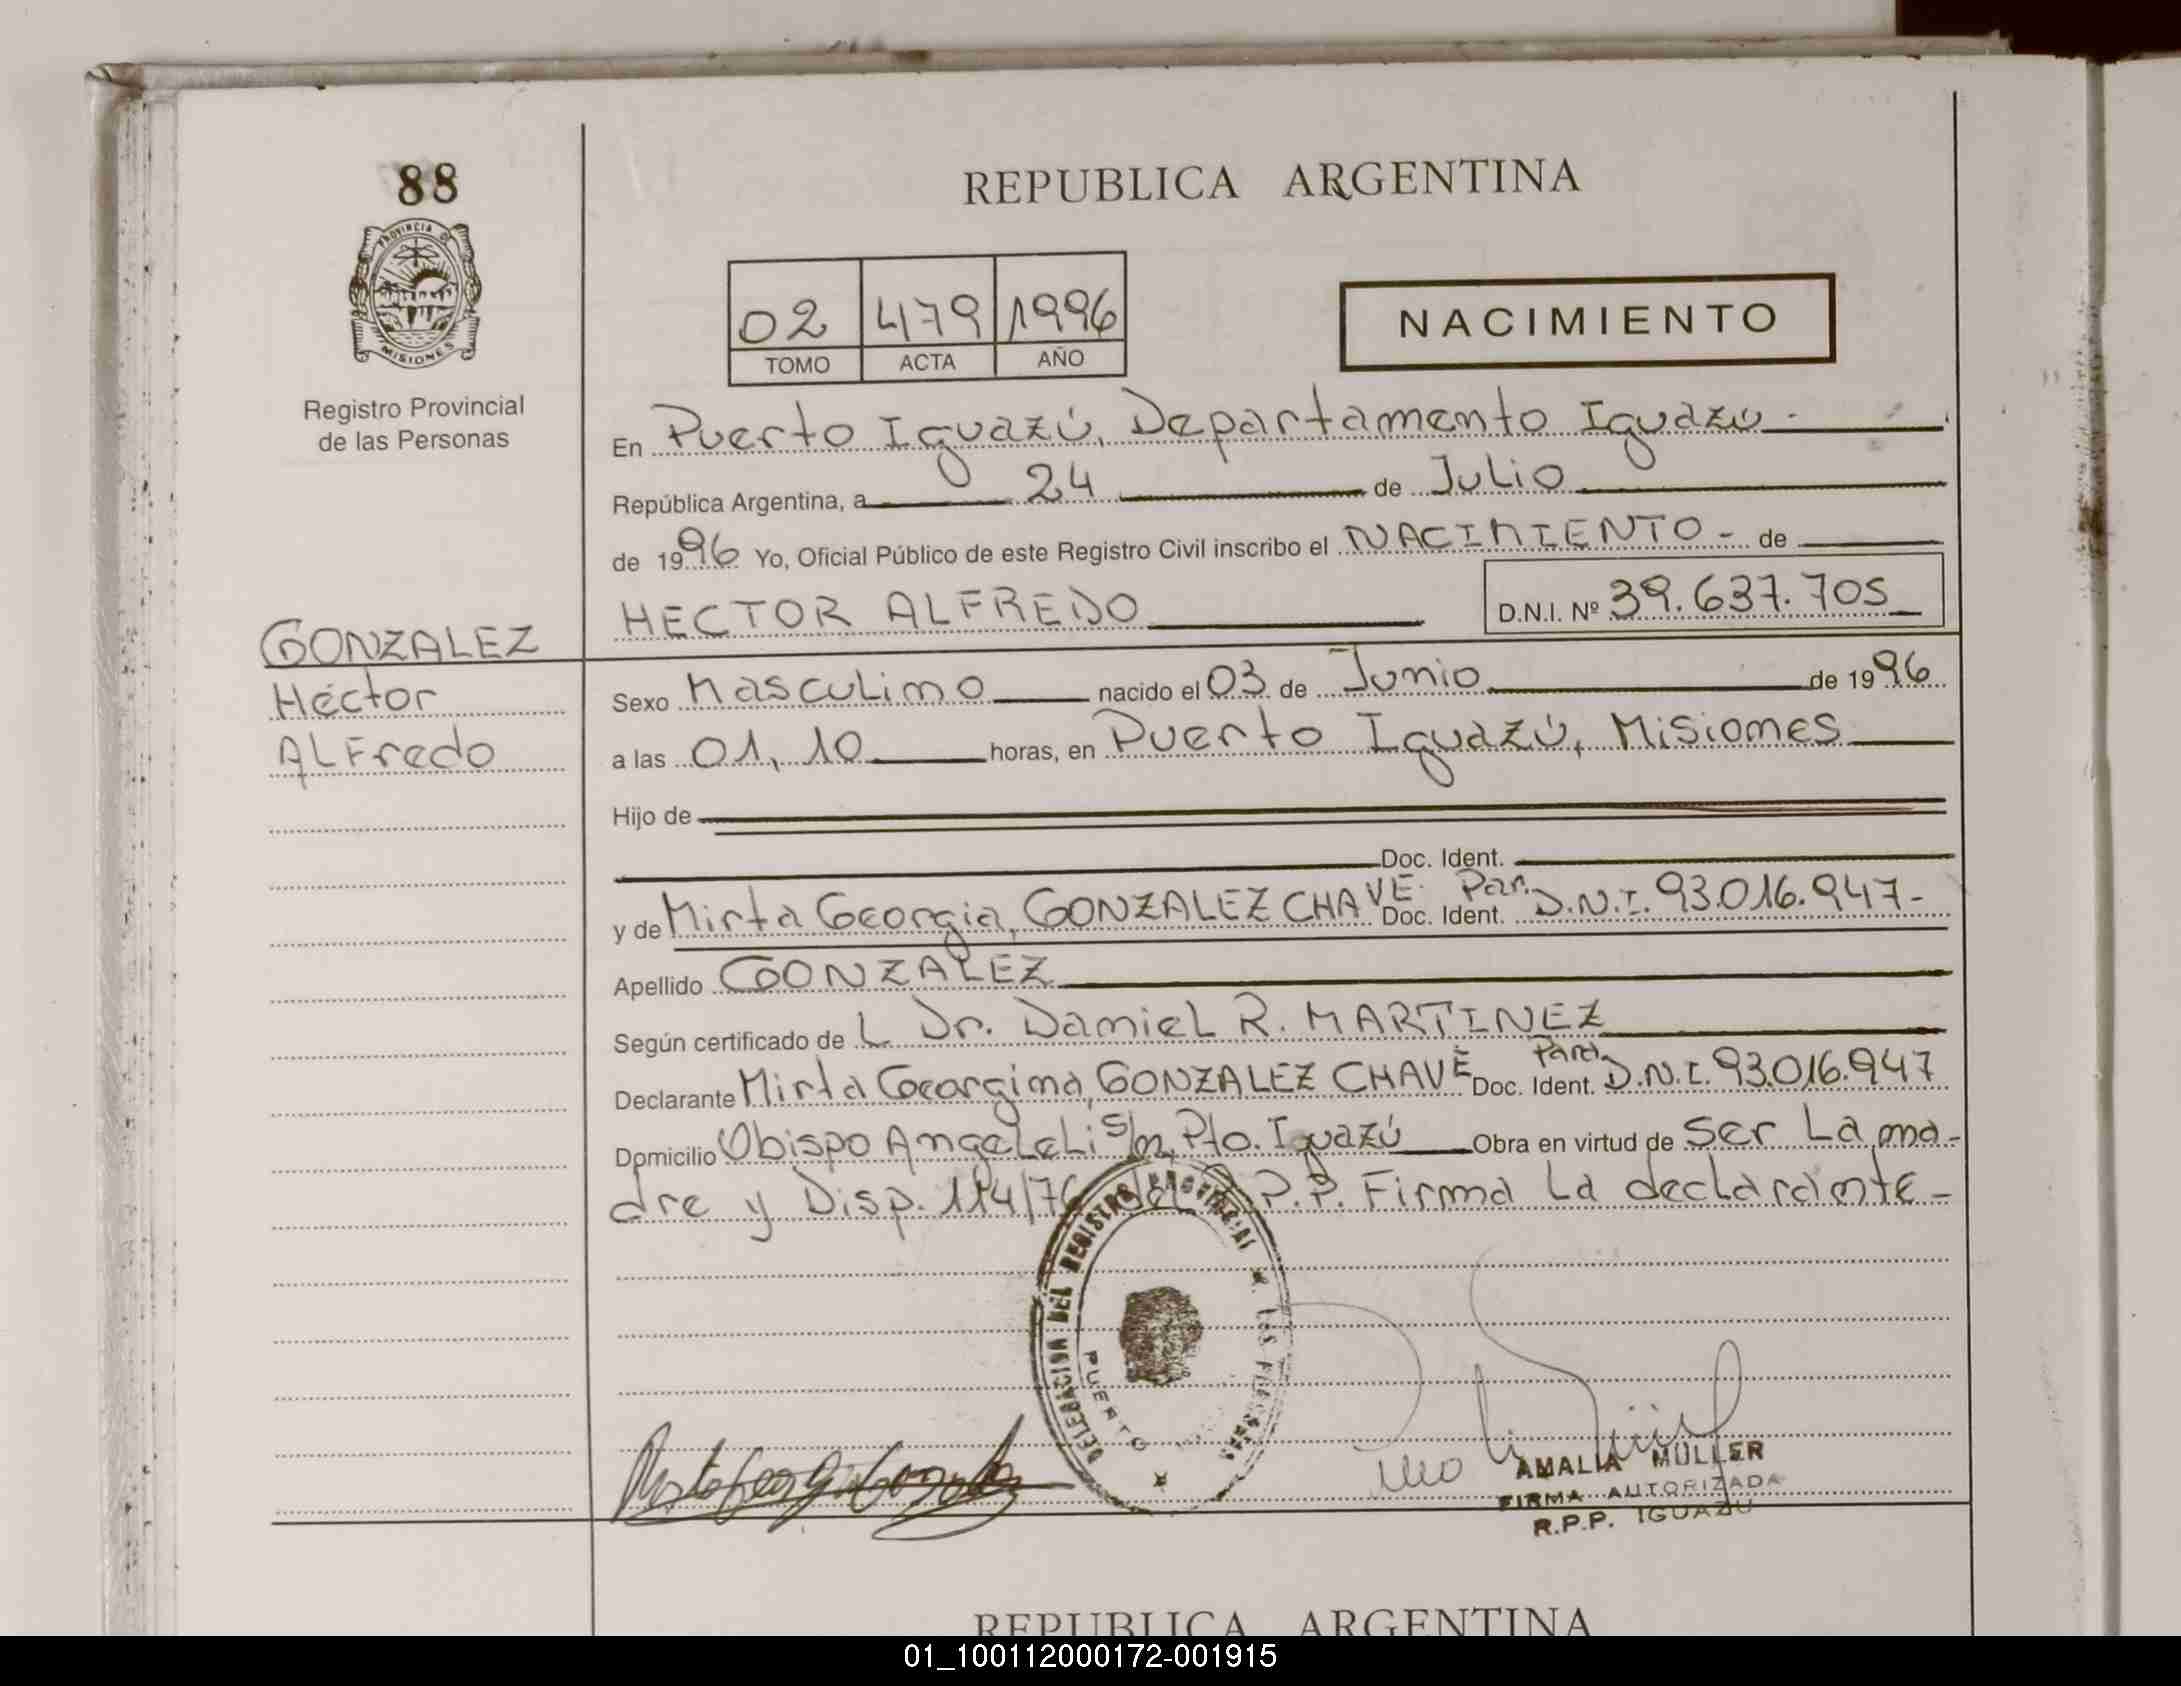 88
PROVINCIA DE
MISIONES
Registro Provincial
de las Personas
REPUBLICA ARGENTINA
02 479 1996
TOMO ACTA AÑO
NACIMIENTO
En Puerto Iguazú, Departamento Iguazú.
República Argentina, a 24 de Julio
de 1996 Yo, Oficial Público de este Registro Civil inscribo el NACIMIENTO - de
HECTOR ALFREDO D.N.I. Nº 39.637.705
GONZALEZ
Héctor
ALFredo
Sexo Masculino nacido el 03 de Junio de 1996
a las 01,10 horas, en Puerto Iguazú, Misiones
Hijo de
Doc. Ident.
y de Mirta Georgia, GONZALEZ CHAVE. Par. Doc. Ident. D.N.I. 93.016.947-
Apellido GONZALEZ
Según certificado de L Dr. Daniel R. MARTINEZ
Declarante Mirta Georgina, GONZALEZ CHAVE Para Doc. Ident. D.N.I. 93.016.947
Domicilio Obispo Angeleli s/n, Pto. Iguazú Obra en virtud de ser La ma-
dre y Disp. 114/76 del R.P.P. Firma la declarante-
DELEGACION DEL REGISTRO PROVINCIAL
PUERTO
AMALIA MULLER
FIRMA AUTORIZADA
R.P.P. IGUAZU
REPUBLICA ARGENTINA
01_100112000172-001915